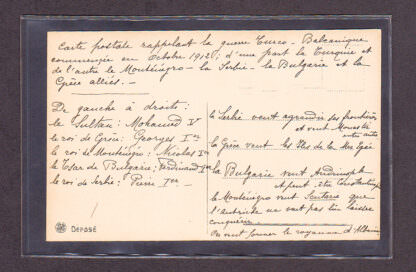 Carte postale rappelant la guerre Turco-Balcanique
commencée en Octobre 1912; d'une part la Turquie et
de l'autre le Monténégro - la Serbie - la Bulgarie et la
Grèce alliés. -
De gauche à droite:
le Sultan: Mohamed V
le roi de Grèce: Georges Ier
le roi de Monténégro: Nicolas Ier
le Tsar de Bulgarie: Ferdinand Ier
le roi de Serbie: Pierre Ier
la Serbie veut agrandir ses frontières
et veut Monastir
entre autre
la Grèce veut les Iles de la Mer Egée
la Bulgarie veut Andrinople
et peut être Constantinople
le Monténégro veut Scutarie que
l'Autriche ne veut pas lui laisser
conquérir.
On veut former le royaume d'Albanie
DEPOSÉ